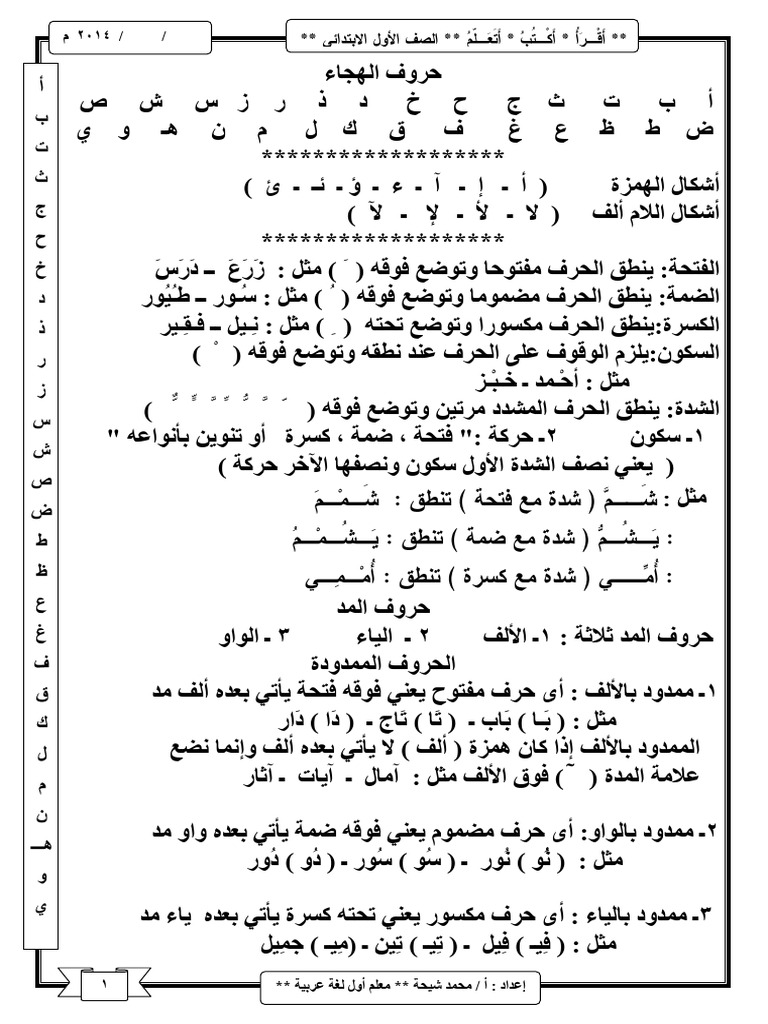 ** أَقْـــرَأُ * أَكْـــتُبُ * أَتَعَـــلَّمُ ** الصف الأول الابتدائى **
/ / ٢٠١٤ م
حروف الهجاء
أ ب ت ث ج ح خ د ذ ر ز س ش ص
ض ط ظ ع غ ف ق ك ل م ن هـ و ي
*******************
أشكال الهمزة ( أ - إ - آ - ء - ؤ - ئـ - ئ )
أشكال اللام ألف ( لا - لأ - لإ - لآ )
*******************
الفتحة: ينطق الحرف مفتوحا وتوضع فوقه ( َ ) مثل : زَرَعَ – دَرَسَ
الضمة: ينطق الحرف مضموما وتوضع فوقه ( ُ ) مثل : سُـور – طُـيُور
الكسرة:ينطق الحرف مكسورا وتوضع تحته ( ِ ) مثل : نِـيل – فَـقِـير
السكون:يلزم الوقوف على الحرف عند نطقه وتوضع فوقه ( ْ )
مثل : أحْـمد ـ خـبْـز
الشدة: ينطق الحرف المشدد مرتين وتوضع فوقه ( َّ ًّ ُّ ِّ ٍّ ٌّ )
١ـ سكون ٢ـ حركة :" فتحة ، ضمة ، كسرة أو تنوين بأنواعه "
( يعني نصف الشدة الأول سكون ونصفها الآخر حركة )
مثل : شَـــــمَّ ( شدة مع فتحة ) تنطق : شَـــمْــمَ
: يَـــشُـــمُّ ( شدة مع ضمة ) تنطق : يَـــشُـــمْـــمُ
: أُمِّـــــي ( شدة مع كسرة ) تنطق : أُمْـــمِـــي
حروف المد
حروف المد ثلاثة : ١ـ الألف ٢ ـ الياء ٣ ـ الواو
الحروف الممدودة
١ـ ممدود بالألف : أى حرف مفتوح يعني فوقه فتحة يأتي بعده ألف مد
مثل : ( بَـا ) بَاب ـ ( تَا ) تَاج ـ ( دَا ) دَار
الممدود بالألف إذا كان همزة ( ألف ) لا يأتي بعده ألف وإنما نضع
علامة المدة ( ~ ) فوق الألف مثل : آمال ـ آيات ـ آثار
٢ـ ممدود بالواو: أى حرف مضموم يعني فوقه ضمة يأتي بعده واو مد
مثل : ( نُو ) نُور ـ ( سُو ) سُور ـ ( دُو ) دُور
٣ـ ممدود بالياء : أى حرف مكسور يعني تحته كسرة يأتي بعده ياء مد
مثل : ( فِيـ ) فِيل ـ ( تِيـ ) تِين ـ (مِيـ ) جمِيل
أ
ب
ت
ث
ج
ح
خ
د
ذ
ر
ز
س
ش
ص
ض
ط
ظ
ع
غ
ف
ق
ك
ل
م
ن
هــ
و
ي
إعداد : أ / محمد شيحة ** معلم أول لغة عربية **
١